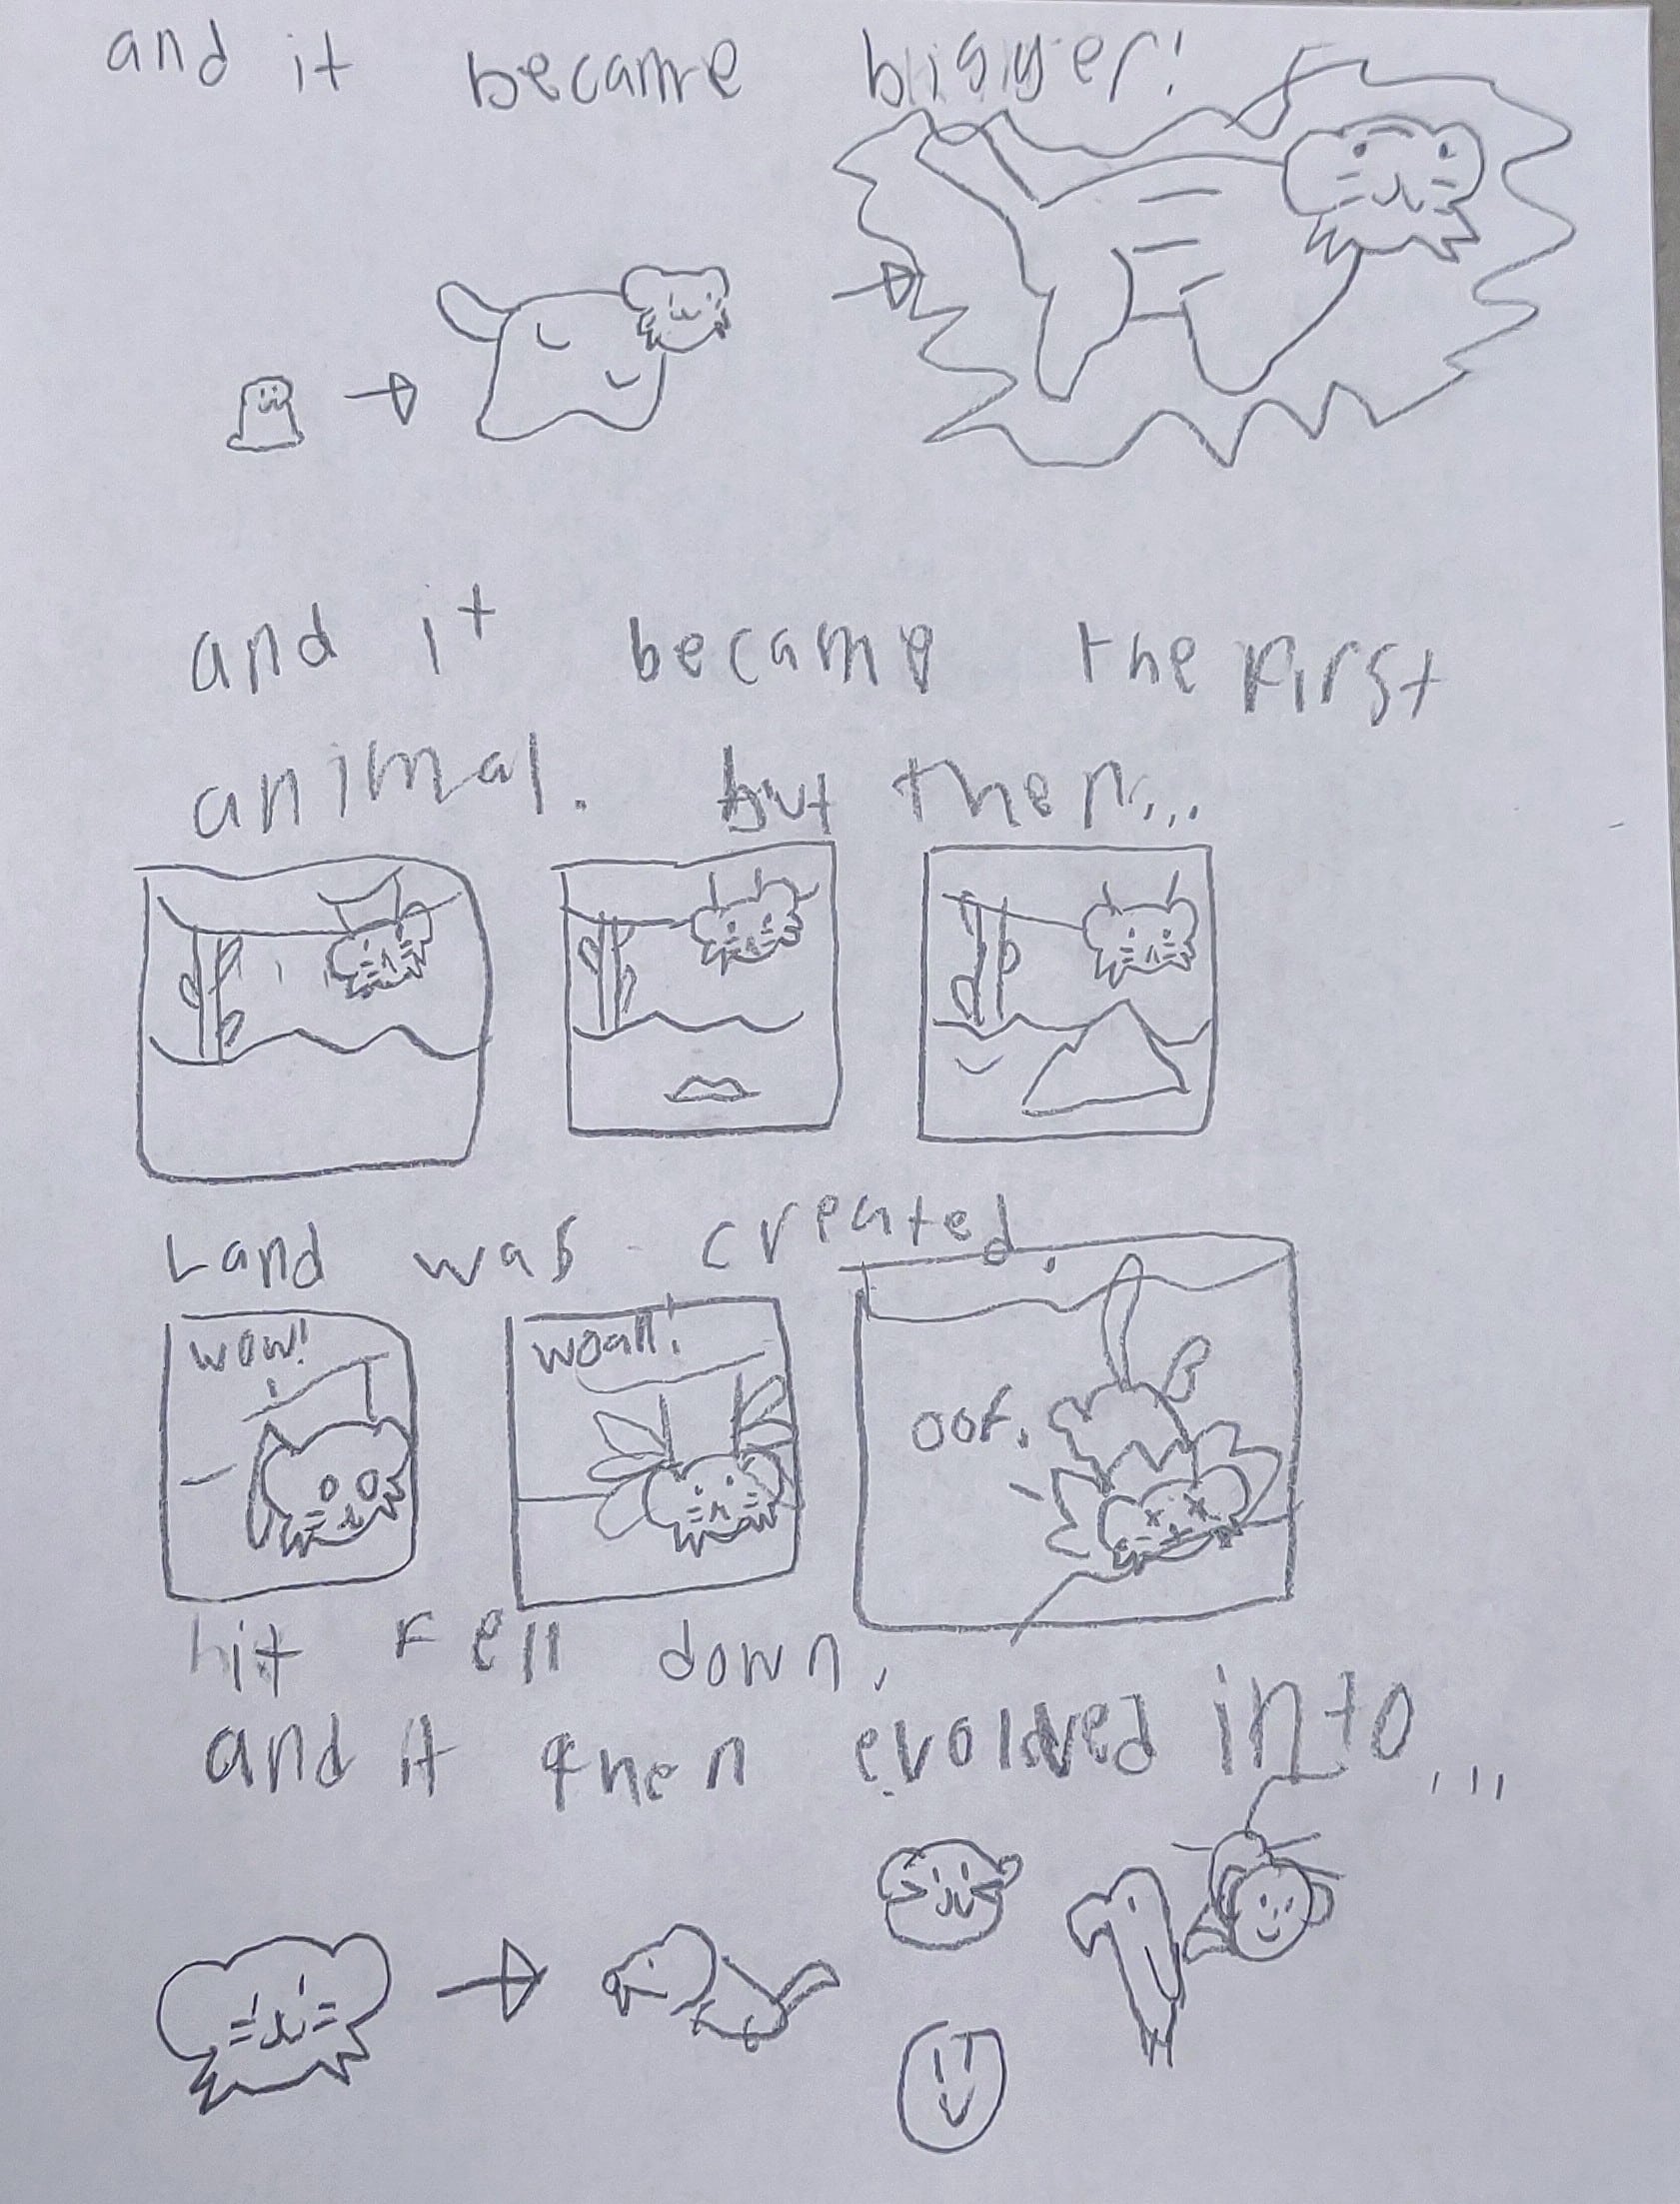 and it became bigger!
and it became the first
animal. but then...
Land was created.
wow!
woah!
oof.
it fell down.
and it then evolved into...